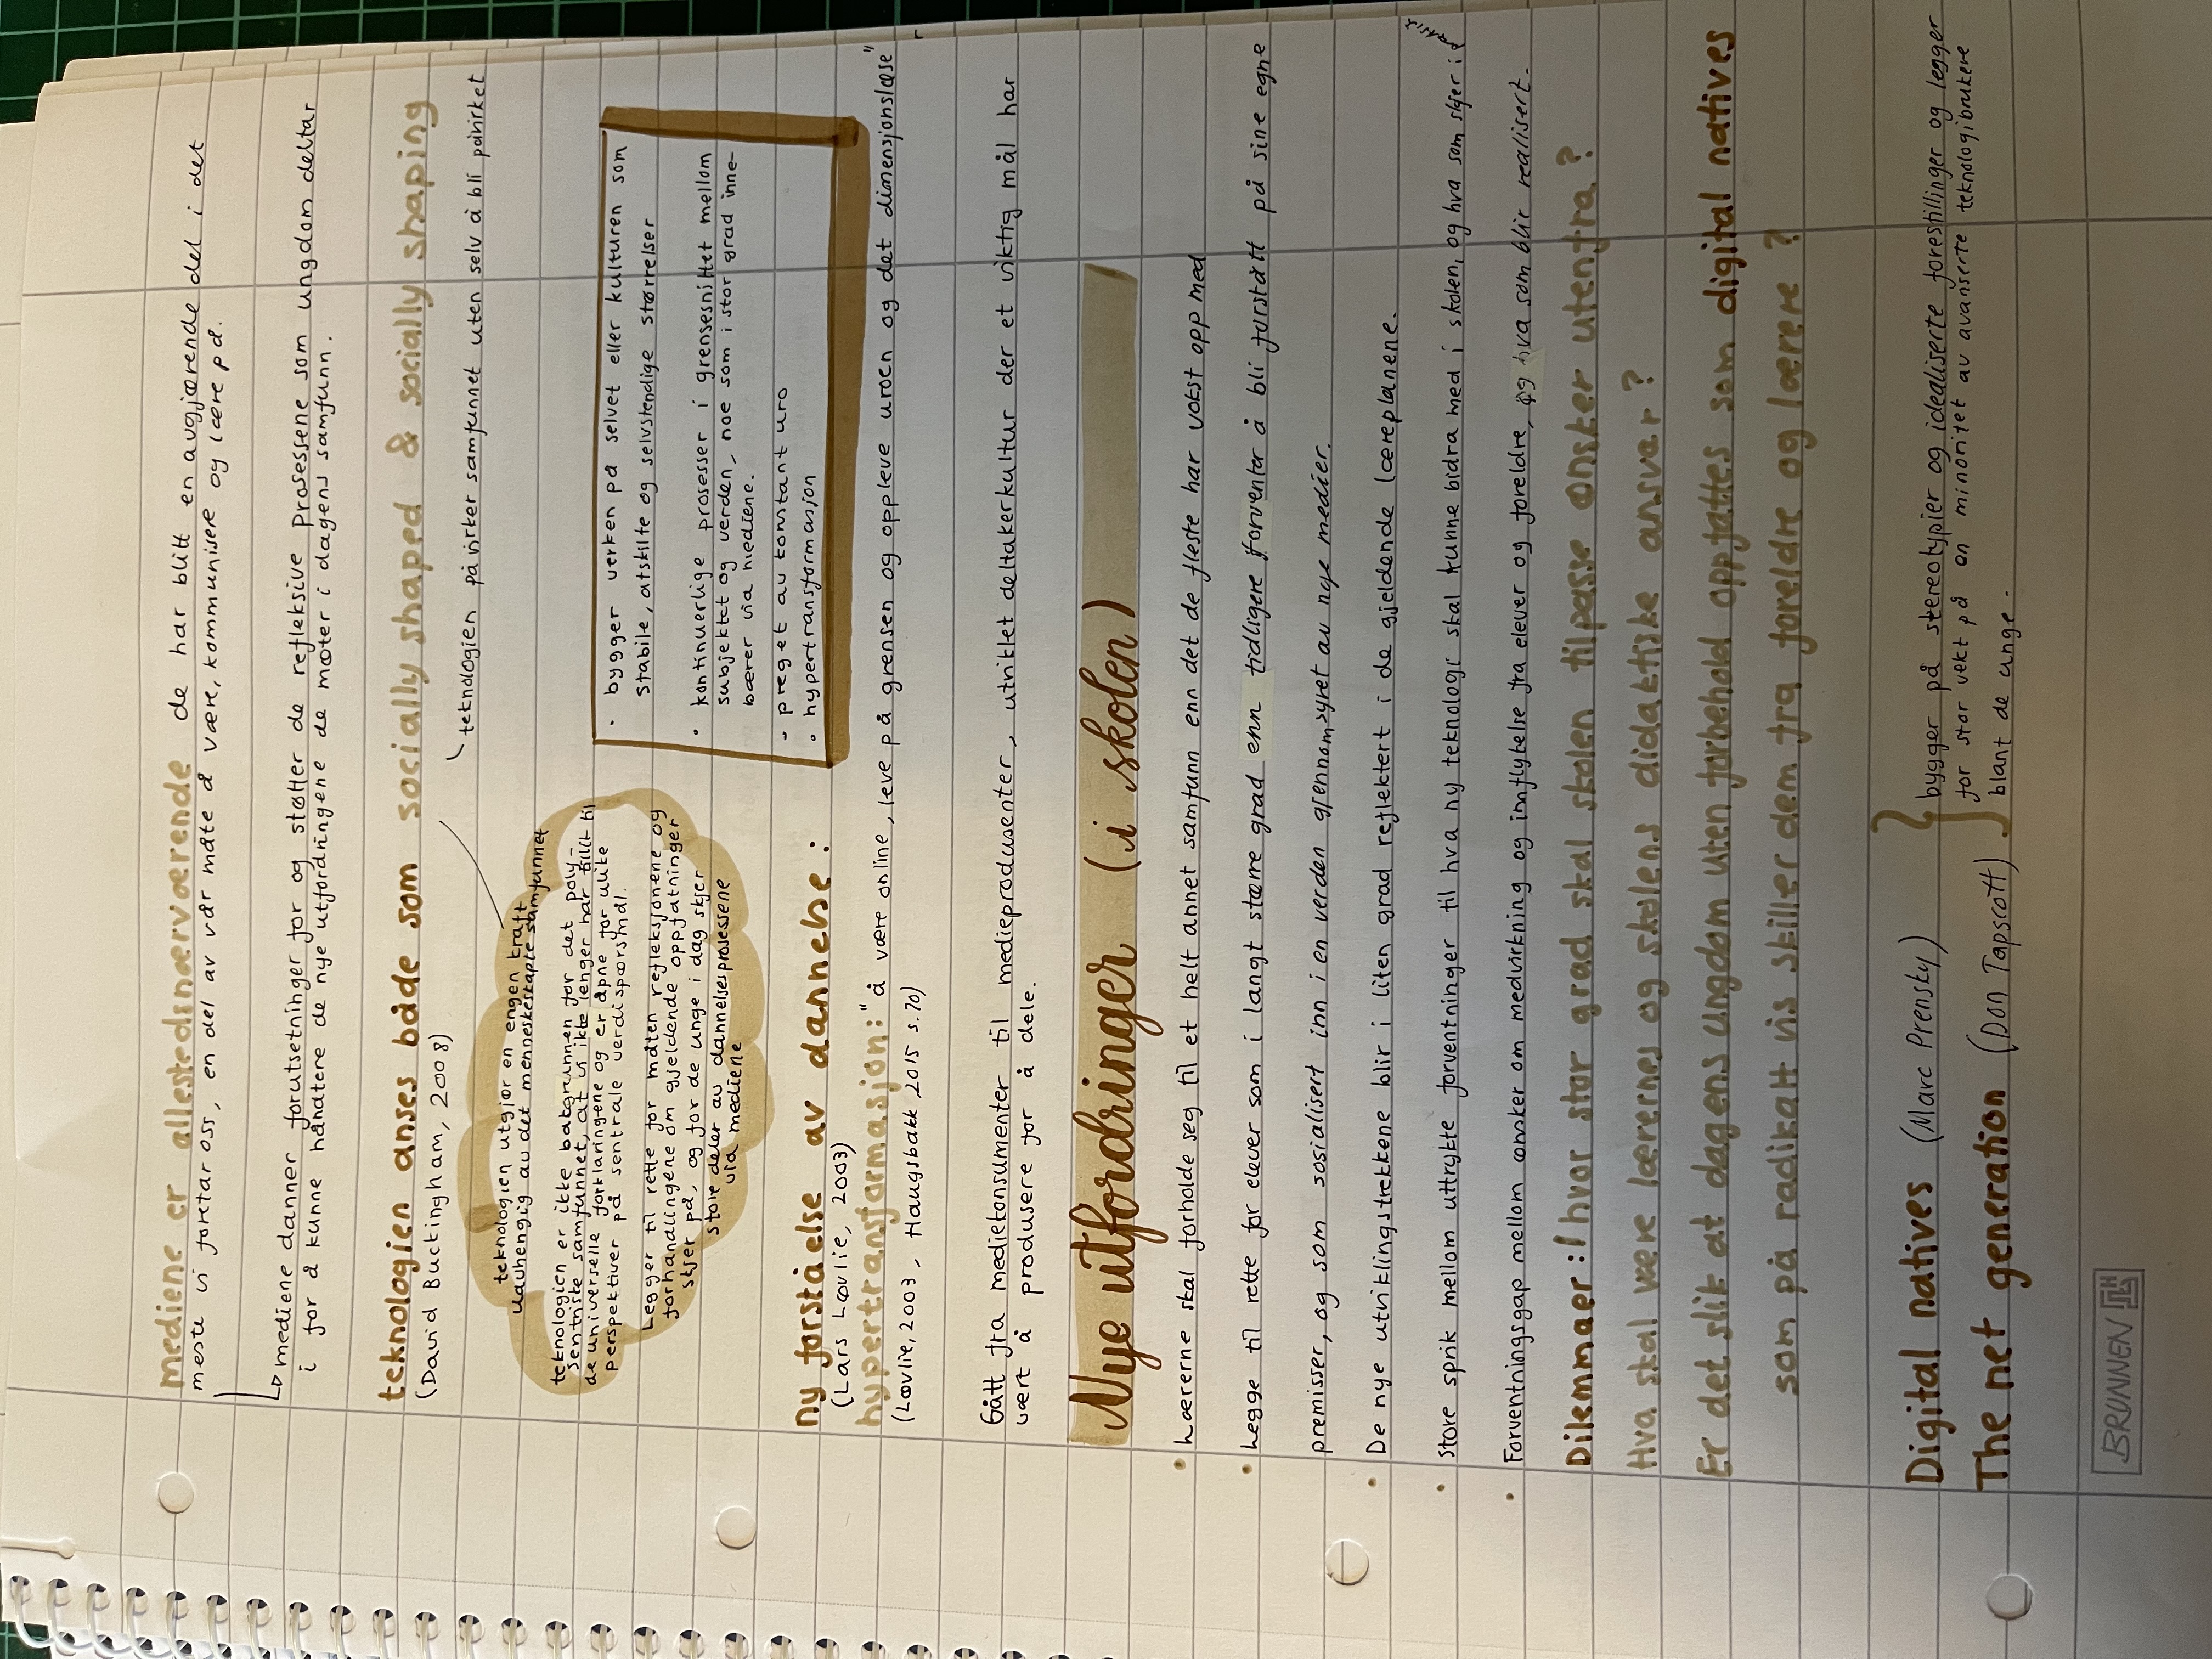 mediene er allestedsnærværende de har blitt en avgjørende del i det
meste vi foretar oss, en del av vår måte å være, kommunisere og lære på.
↳ mediene danner forutsetninger for og støtter de refleksive prosessene som ungdom deltar
i for å kunne håndtere de nye utfordringene de møter i dagens samfunn.
teknologien anses både som socially shaped & socially shaping
(David Buckingham, 2008)
teknologien påvirker samfunnet uten selv å bli påvirket
teknologien utgjør en engen kraft
uavhengig av det menneskeskapte samfunnet
teknologien er ikke bakgrunnen for det poly-
sentriske samfunnet, at vi ikke lenger har tillit til
de universelle forklaringene og er åpne for ulike
perspektiver på sentrale verdispørsmål.
Legger til rette for måten refleksjonene og
forhandlingene om gjeldende oppfatninger
skjer på, og for de unge i dag skjer
store deler av dannelsesprosessene
via mediene
• bygger verken på selvet eller kulturen som
stabile, atskilte og selvstendige størrelser
• kontinuerlige prosesser i grensesnittet mellom
subjektet og verden, noe som i stor grad inne-
bærer via mediene.
- preget av konstant uro
• hypertransformasjon
ny forståelse av dannelse:
(Lars Løvlie, 2003)
hypertransformasjon: "å være online, leve på grensen og oppleve uroen og det dimensjonsløse"
(Løvlie, 2003, Haugsbakk, 2015 s. 70)
Gått fra mediekonsumenter til medieprodusenter, utviklet deltakerkultur der et viktig mål har
vært å produsere for å dele.
Nye utfordringer (i skolen)
• Lærerne skal forholde seg til et helt annet samfunn enn det de fleste har vokst opp med
• Legge til rette for elever som i langt større grad enn tidligere forventer å bli forstått på sine egne
premisser, og som sosialisert inn i en verden gjennomsyret av nye medier.
• De nye utviklingstrekkene blir i liten grad reflektert i de gjeldende læreplanene.
• Store sprik mellom uttrykte forventninger til hva ny teknologi skal kunne bidra med i skolen, og hva som skjer i
• Forventningsgap mellom ønsker om medvirkning og innflytelse fra elever og foreldre, og hva som blir realisert.
Dilemmaer: I hvor stor grad skal skolen tilpasse ønsker utenfra?
Hva skal være lærernes og skolens didaktiske ansvar?
Er det slik at dagens ungdom uten forbehold oppfattes som digital natives
som på radikalt vis skiller dem fra foreldre og lærere?
Digital natives (Marc Prensky)
The net generation (Don Tapscott)
bygger på stereotypier og idealiserte forestillinger og legger
for stor vekt på en minoritet av avanserte teknologibrukere
blant de unge.
BRUNNEN